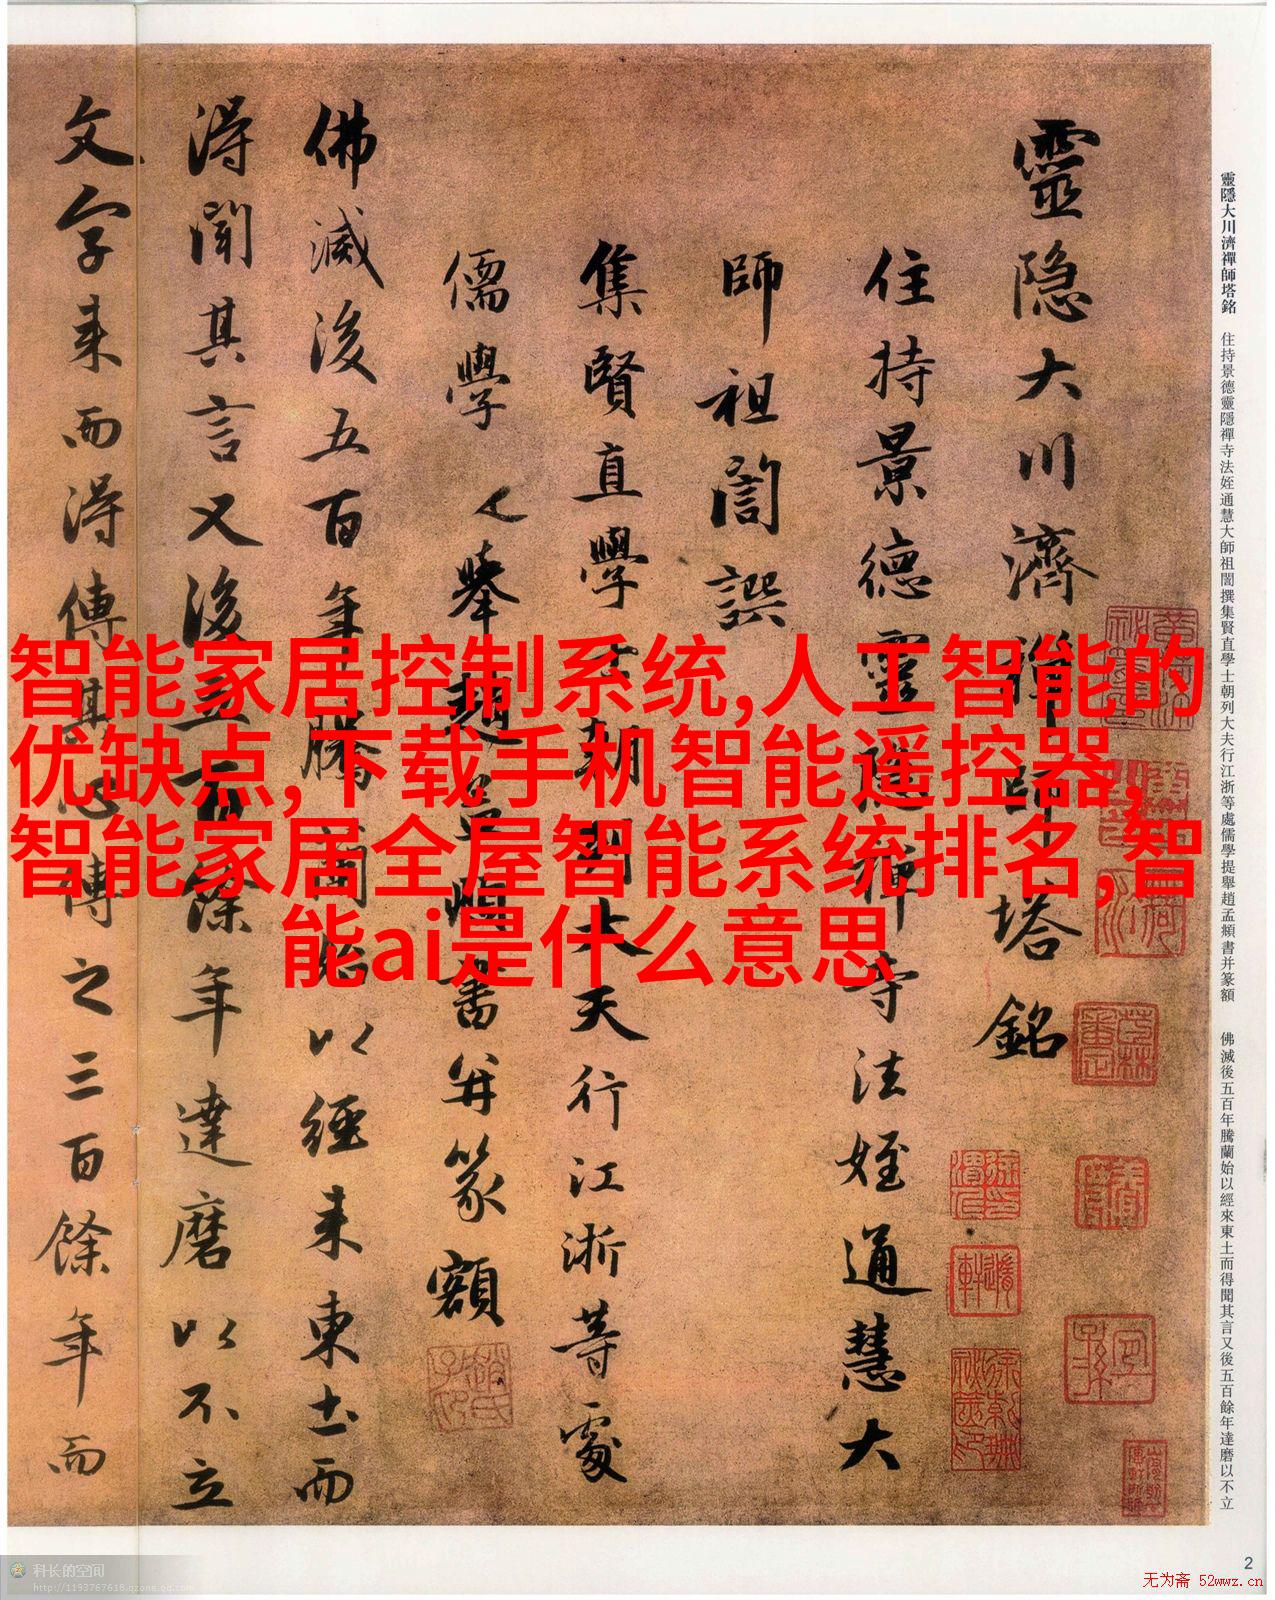 靈隐大川濟禪師塔銘
住持景德靈隐禪寺法姪通慧大
師祖誾譔
集賢直學士朝列大夫行江浙等處
儒學提舉趙孟頫書并篆額
佛滅後五百年騰蘭始以經来東土而
得聞其言又後五百餘年達磨以不立
文字来而得傳其心傳之三百餘年而
靈隱大川濟禪師塔銘 住持景德靈隱禪寺法姪通慧大師祖誾撰集賢直學士朝列大夫行江浙等處儒學提舉趙孟頫書并篆額 佛滅後五百年騰蘭始以經來東土而得聞其言又後五百餘年達磨以不立
智能家居控制系统,人工智能的
优缺点,下载手机智能遥控器,
智能家居全屋智能系统排名,智
能ai是什么意思
2
科长的空间
http://1193767618.qzone.qq.com
无为斋 52wwz.cn